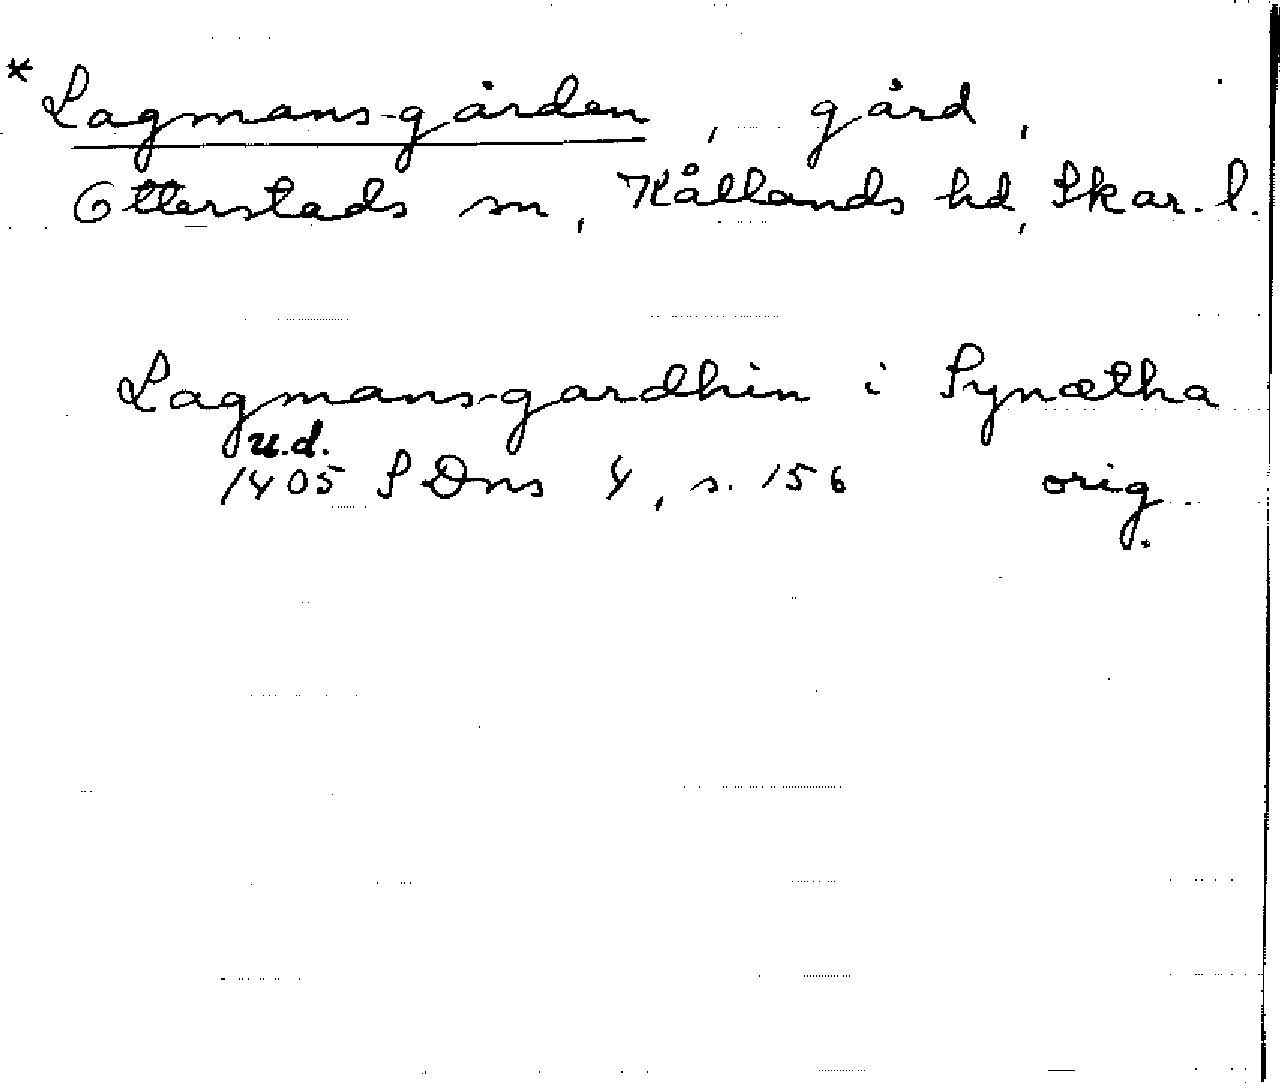 * Lagmans-gården, gård,
Otterstads sn, Kållands hd, Skar. l.
Lagmans-gardhin i Synætha
u.d.
1405 SDns 4, s. 156 orig.